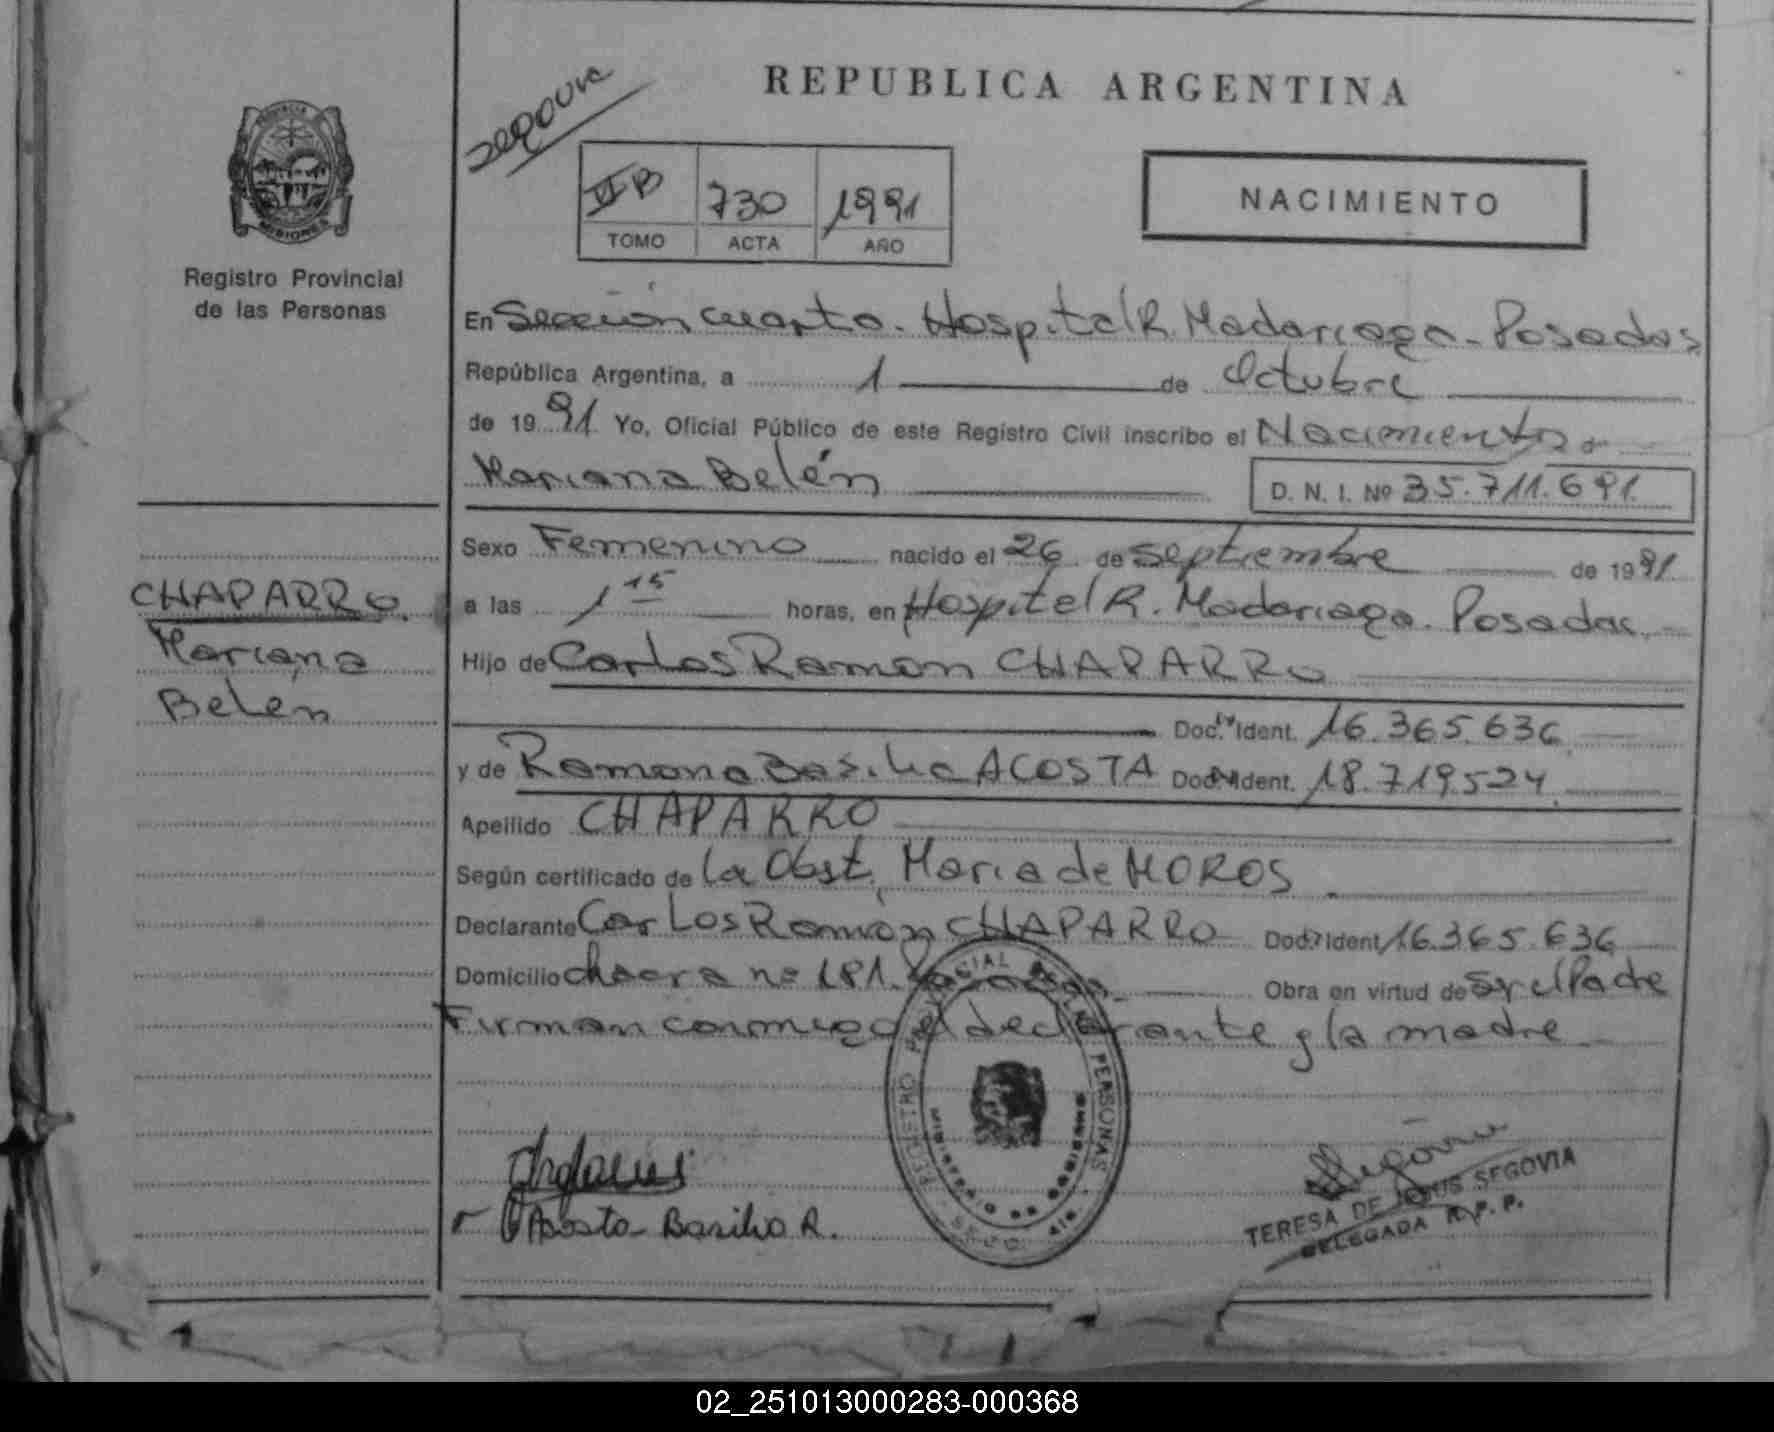 REPUBLICA ARGENTINA
PROVINCIA
MISIONES
Registro Provincial
de las Personas
II B 730 1991
TOMO ACTA AÑO
NACIMIENTO
En Sección cuarta. Hospital R. Madariaga - Posadas
República Argentina, a 1 de Octubre
de 1991 Yo, Oficial Público de este Registro Civil inscribo el Nacimiento de
Mariana Belén D. N. I. Nº 35.711.691
Sexo Femenino nacido el 26 de Septiembre de 1991
a las 1 15 horas, en Hospital R. Madariaga. Posadas.
Hijo de Carlos Ramón CHAPARRO
Doc. Ident. 16.365.636
y de Ramona Basilia ACOSTA Doc. Ident. 18.719.524
Apellido CHAPARRO
Según certificado de la Obst. Maria de MOROS
Declarante Carlos Ramón CHAPARRO Doc. Ident. 16.365.636
Domicilio chacra nº 181. Posadas. Obra en virtud de Ser el Padre
Firman conmigo el declarante y la madre
CHAPARRO.
Mariana
Belén
REGISTRO PROVINCIAL DE LAS PERSONAS
MINISTERIO DE GOBIERNO
Acosta Basilia R.
Segovia
TERESA DE JESUS SEGOVIA
DELEGADA R. P. P.
02_251013000283-000368